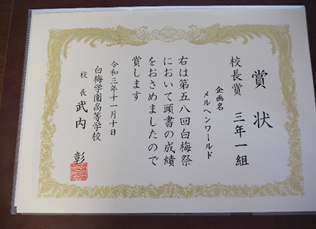 賞状
校長賞 三年一組
企画名
メルヘンワールド
右は第五八回白梅祭
において頭書の成績
をおさめましたので
賞します
令和三年十一月十日
白梅学園高等学校
校長 武内 彰